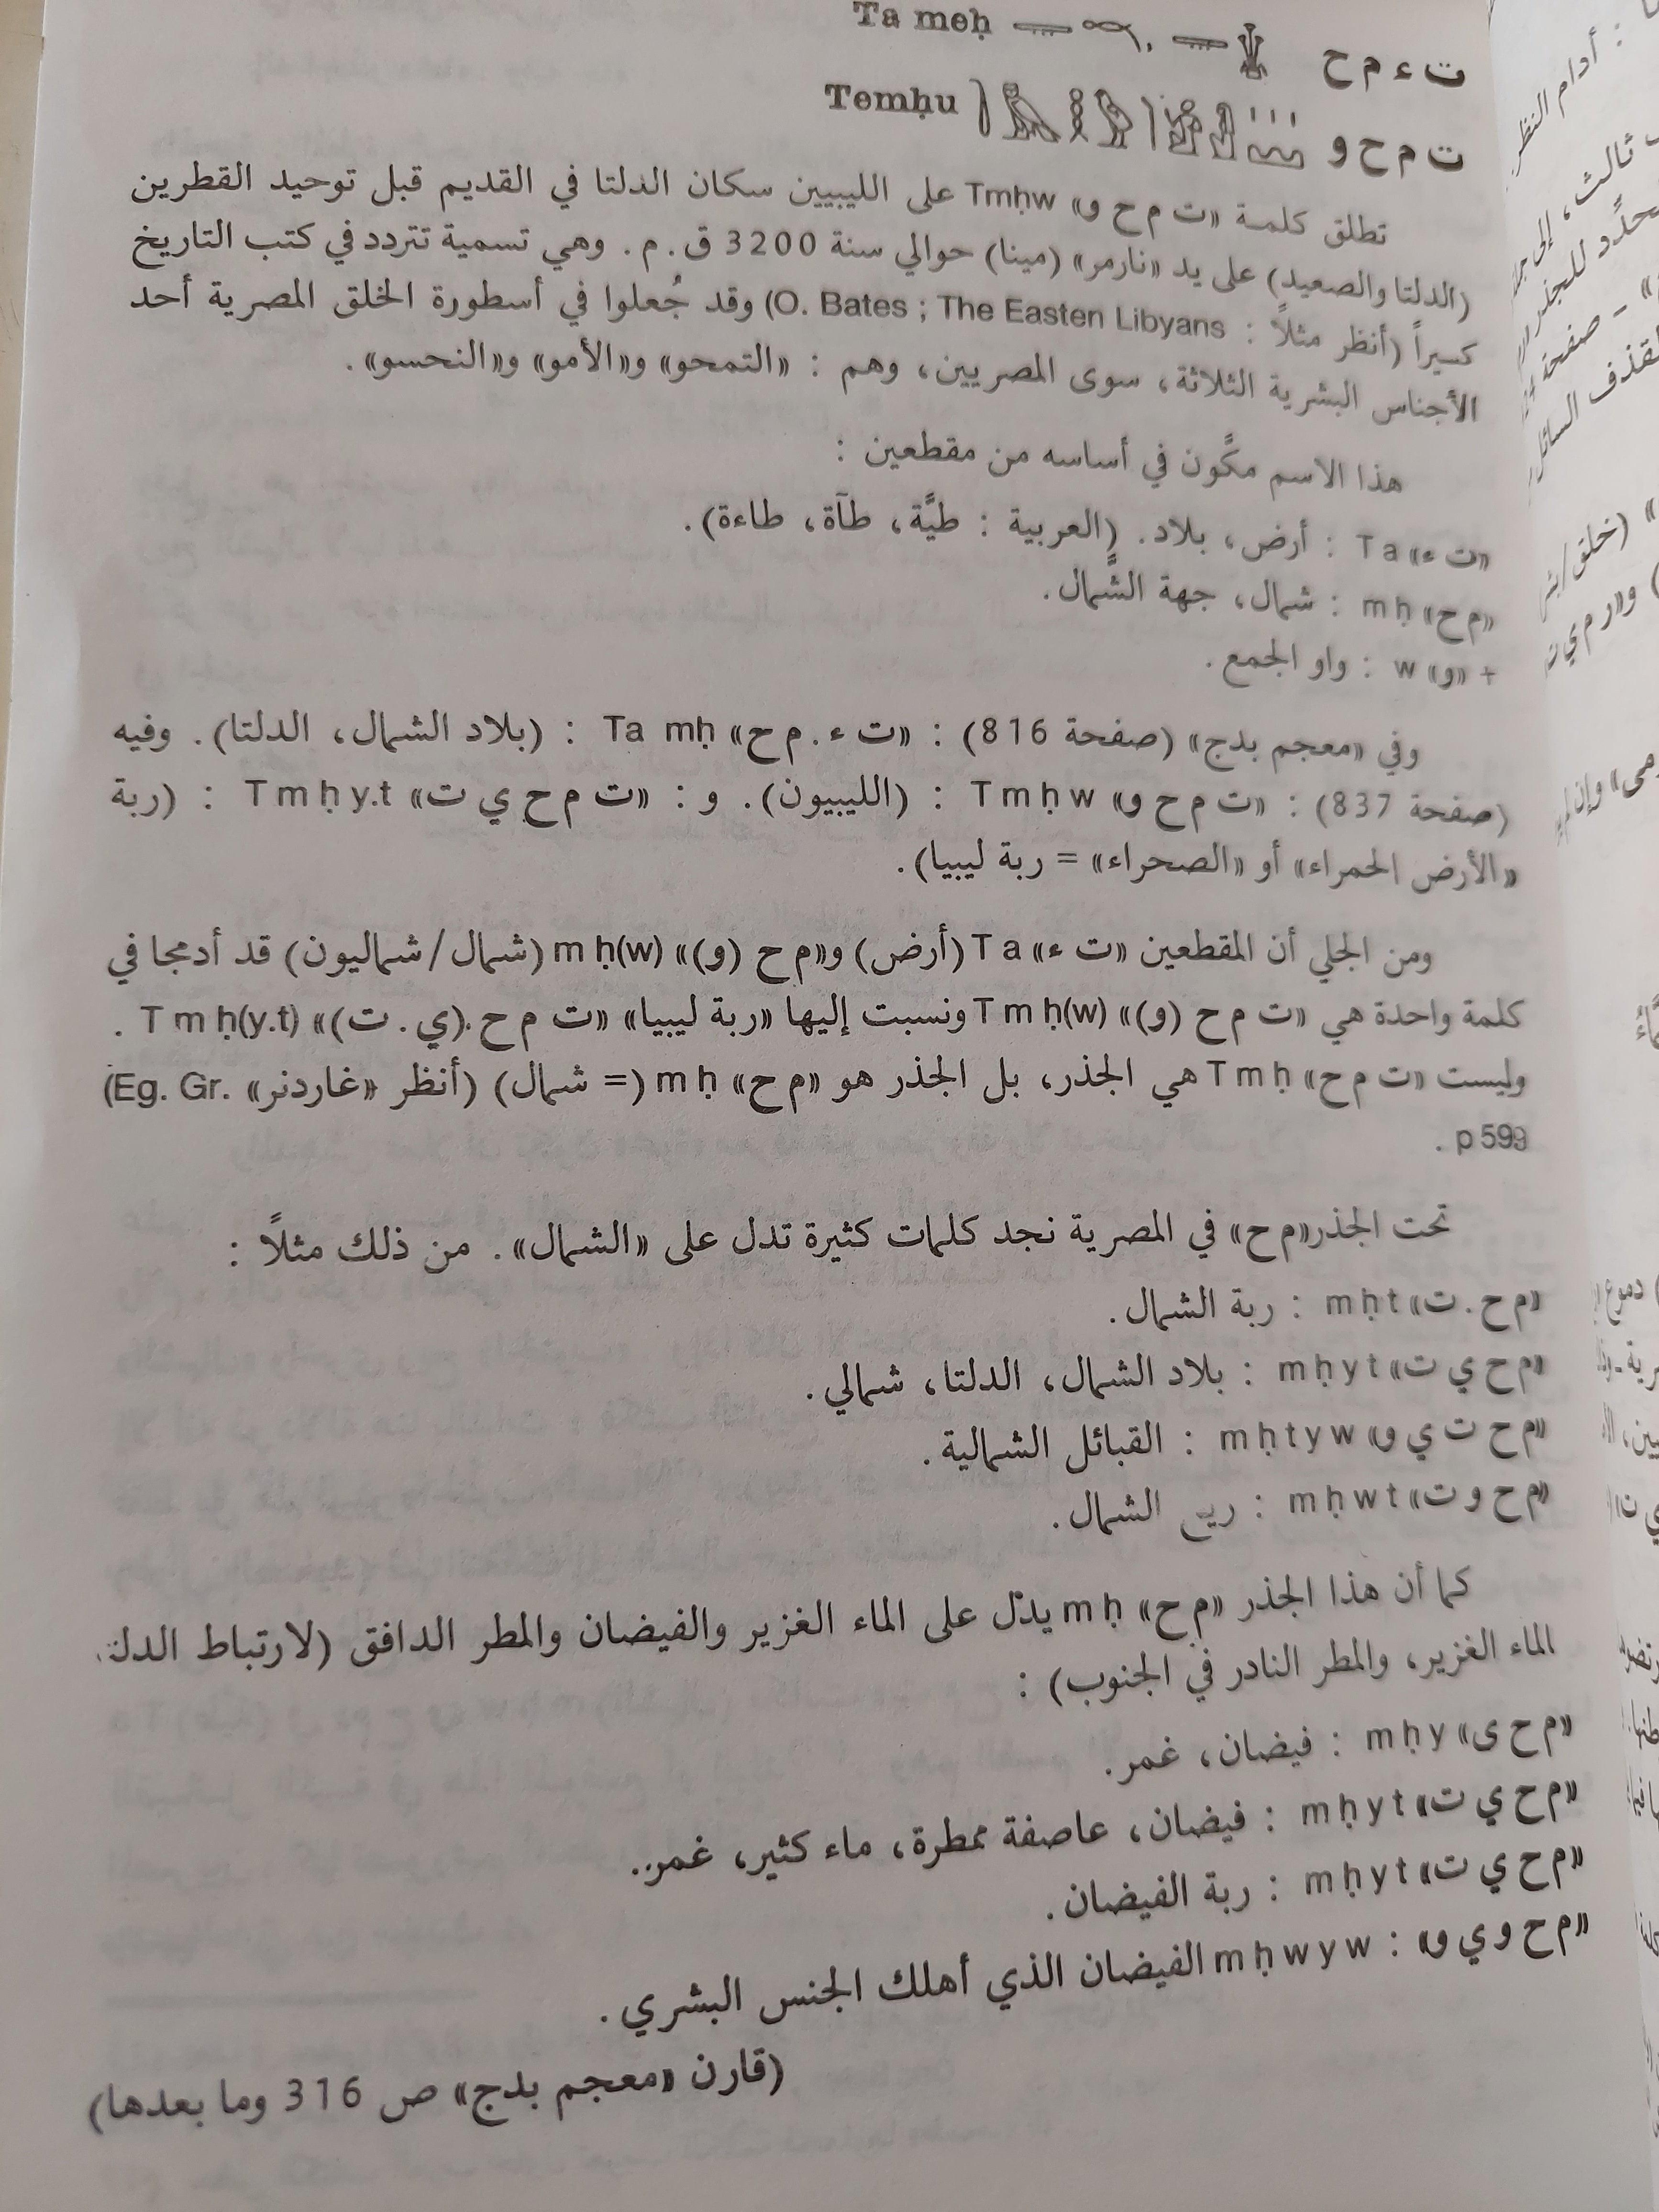 ت ء م ح Ta meḥ
ت م ح و Temḥu
تطلق كلمة «ت م ح و» Tmḥw على الليبيين سكان الدلتا في القديم قبل توحيد القطرين
(الدلتا والصعيد) على يد «نارمر» (مينا) حوالي سنة 3200 ق. م. وهي تسمية تتردد في كتب التاريخ
كسيراً (أنظر مثلاً : O. Bates ; The Easten Libyans) وقد جُعلوا في أسطورة الخلق المصرية أحد
الأجناس البشرية الثلاثة، سوى المصريين، وهم : «التمحو» و«الأمو» و«النحسو».
هذا الاسم مكَّون في أساسه من مقطعين :
«ت ء» Ta : أرض، بلاد. (العربية : طيَّة، طآة، طاءة).
«م ح» mḥ : شمال، جهة الشَّمال.
+ «و» w : واو الجمع.
وفي «معجم بدج» (صفحة 816) : «ت ء. م ح» Ta mḥ : (بلاد الشمال، الدلتا). وفيه
(صفحة 837) : «ت م ح و» Tmḥw : (الليبيون). و : «ت م ح ي ت» Tmḥy.t : (ربة
«الأرض الحمراء» أو «الصحراء» = ربة ليبيا).
ومن الجلي أن المقطعين «ت ء» Ta (أرض) و«م ح (و)» mḥ(w) (شمال/شماليون) قد أدمجا في
كلمة واحدة هي «ت م ح (و)» Tmḥ(w) ونسبت إليها «ربة ليبيا» «ت م ح.(ي. ت)» Tmḥ(y.t) .
وليست «ت م ح» Tmḥ هي الجذر، بل الجذر هو «م ح» mḥ (= شمال) (أنظر «غاردنر» Eg. Gr.)
p 599 .
تحت الجذر«م ح» في المصرية نجد كلمات كثيرة تدل على «الشمال». من ذلك مثلاً :
«م ح. ت» mḥt : ربة الشمال.
«م ح ي ت» mḥyt : بلاد الشمال، الدلتا، شمالي.
«م ح ت ي و» mḥtyw : القبائل الشمالية.
«م ح و ت» mḥwt : ريح الشمال.
كما أن هذا الجذر «م ح» mḥ يدلّ على الماء الغزير والفيضان والمطر الدافق (لارتباط
الماء الغزير، والمطر النادر في الجنوب) :
«م ح ى» mḥy : فيضان، غمر.
«م ح ي ت» mḥyt : فيضان، عاصفة ممطرة، ماء كثير، غمر.
«م ح ي ت» mḥyt : ربة الفيضان.
«م ح و ي و» : mḥwyw الفيضان الذي أهلك الجنس البشري.
(قارن «معجم بدج» ص 316 وما بعدها)